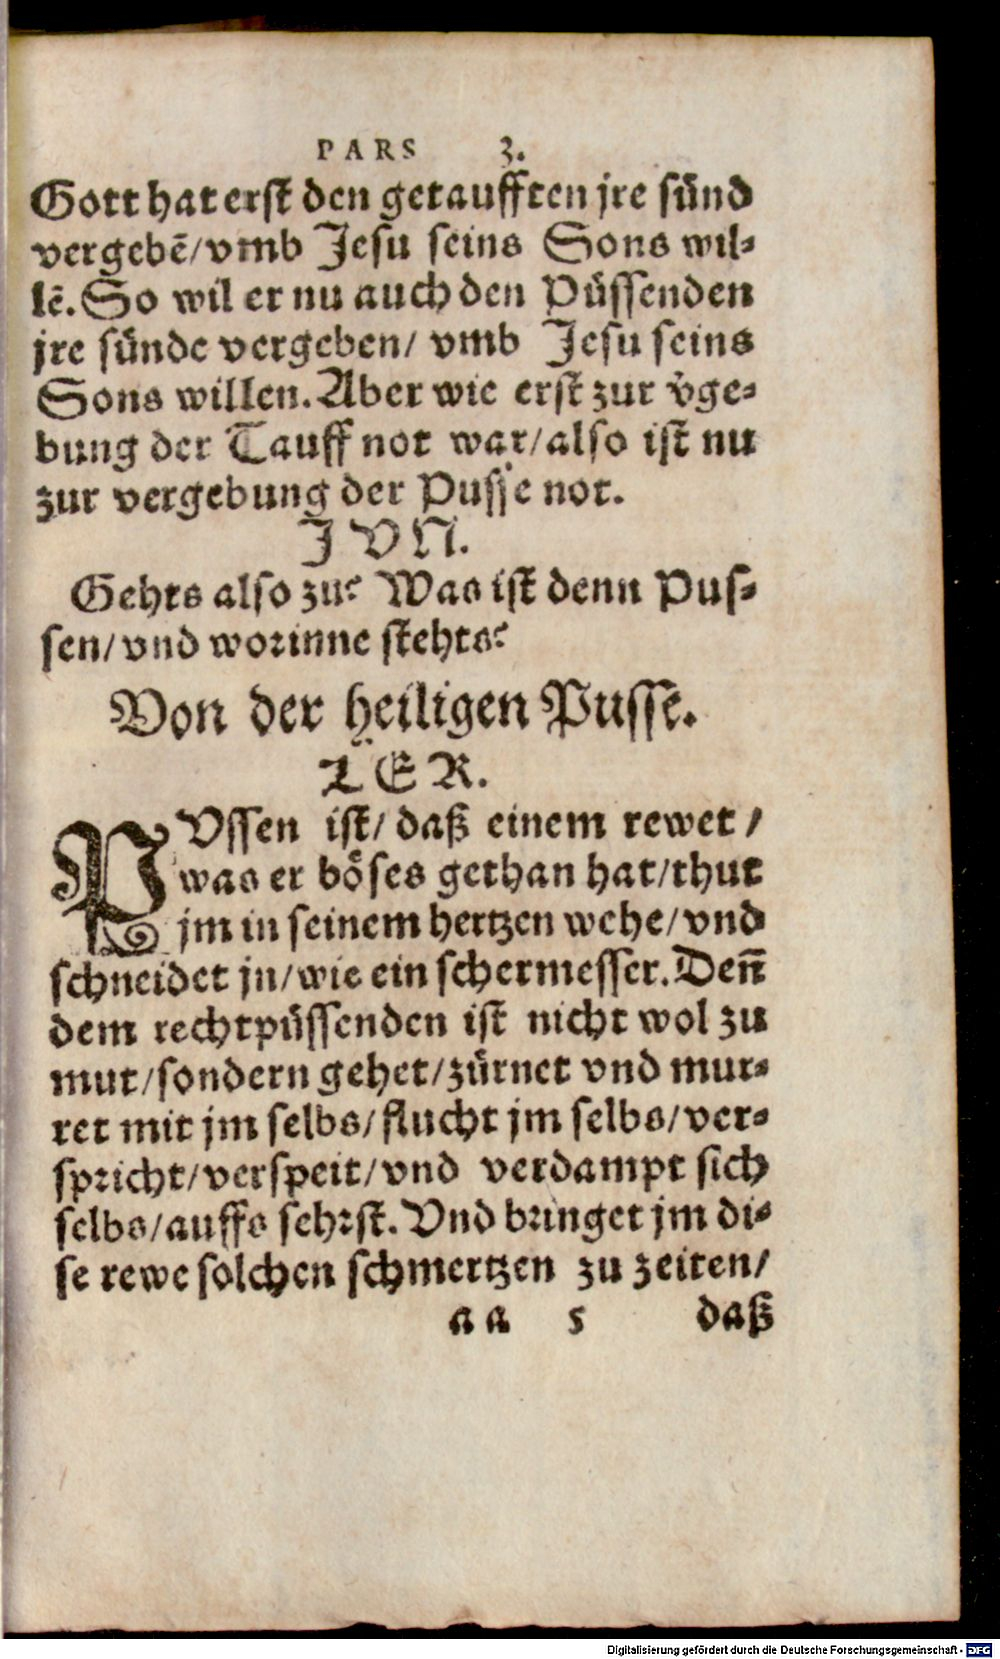 PARS 3.
Gott hat erst den getaufften jre sünd
vergebẽ/vmb Jesu seins Sons wil⸗
lẽ. So wil er nu auch den Püssenden
jre sünde vergeben/ vmb Jesu seins
Sons willen. Aber wie erst zur v̈ge⸗
bung der Tauff not war/also ist nu
zur vergebung der Pusse not.
JVN.
Gehts also zu? Was ist denn Pus⸗
sen/vnd worinne stehts?
Von der heiligen Pusse.
TER.
PVssen ist/ daß einem rewet/
was er böses gethan hat/thut
jm in seinem hertzen wehe/vnd
schneidet jn/wie ein schermesser. Den̄
dem rechtpüssenden ist nicht wol zu
mut/sondern gehet/zürnet vnd mur⸗
ret mit jm selbs/flucht jm selbs/ver⸗
spricht/verspeit/vnd verdampt sich
selbs/auffs sehrst. Vnd bringet jm di⸗
se rewe solchen schmertzen zu zeiten/
aa 5 daß
Digitalisierung gefördert durch die Deutsche Forschungsgemeinschaft - DFG